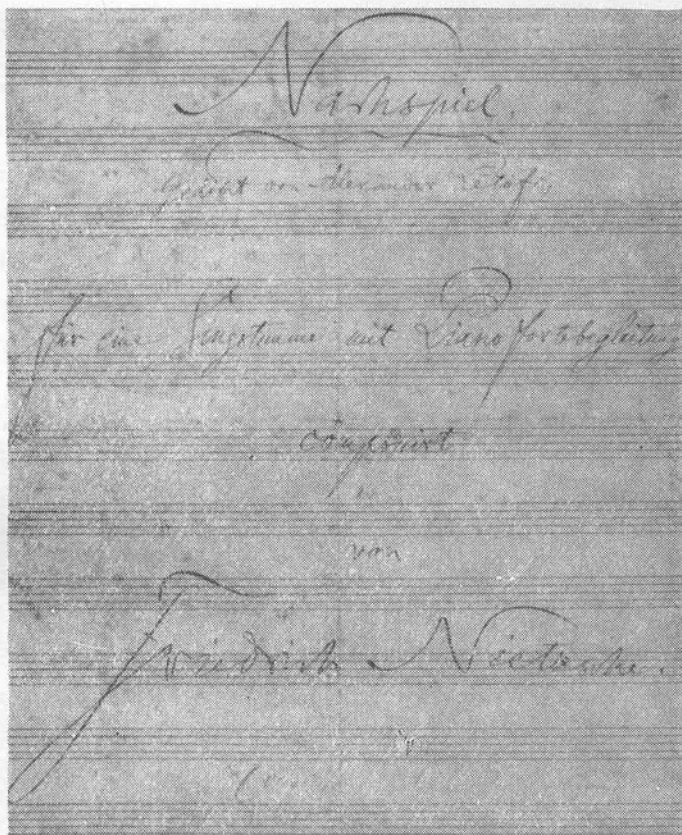 Nachspiel.
Gedicht von Alexander Petöfi,
für eine Singstimme mit Pianofortebegleitung
componirt
von
Friedrich Nietzsche.